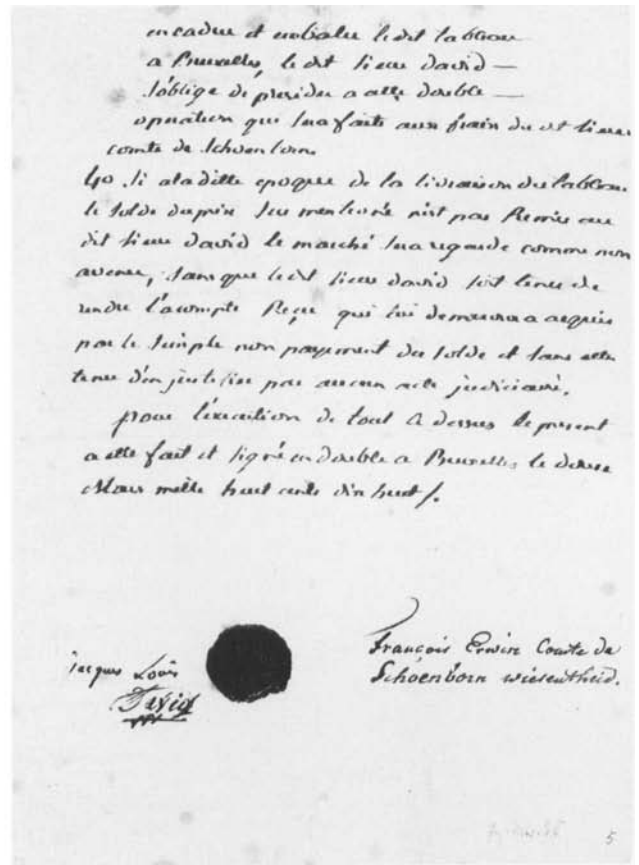 encadre et embaler ledit tableau
a Bruxelles, le dit sieur david —
s'oblige de presider a cette double —
operation qui sera faite aux frain du dt sieur
comte de Schoenborn
4o Si aladitte epoque de la livraison du tableau
le solde du prix sus mentionné n'est par Remis au
dit sieur david le marché sera regardé comme non
avenu, sans que ledit sieur david soit tenu de
rendre l'acompte Reçu qui lui demeurera acquis
par le simple non payement du solde et sans etre
tenu d'en justifier par aucun acte judiciaire.
pour l'execution de tout ci dessus le present
a etté fait et signé en double a Bruxelles le douze
Mars mille huit cents dix huit /.
Jacques Louis
David
François Erwin Comte de
Schöenborn wiesentheid.
5